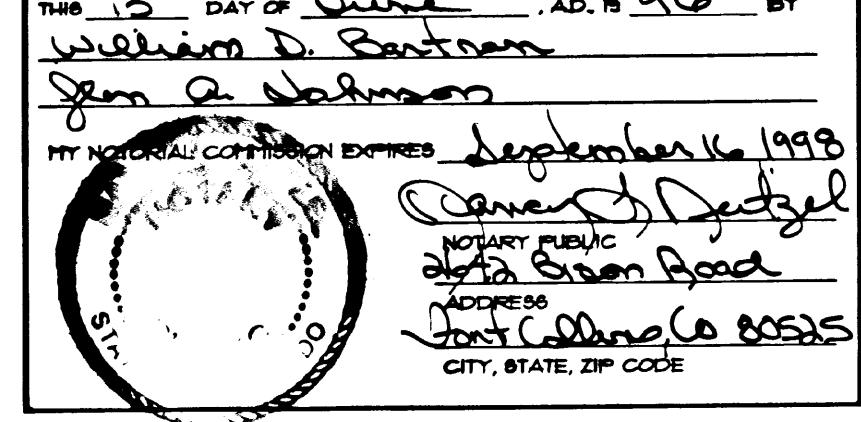 THIS 13 DAY OF June, A.D. 19 96 BY
William D. Bartran
Glen A. Johnson
MY NOTORIAL COMMISSION EXPIRES September 16 1998
Nancy J Deitzel
NOTARY PUBLIC
2642 Bison Road
ADDRESS
Fort Collins, Co 80525
CITY, STATE, ZIP CODE
STA
CO